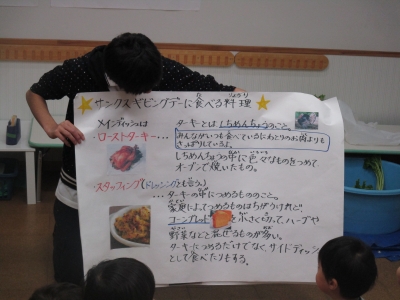 ★サンクスギビングデーに食べる料理★
た りょうり
メインディッシュは
・ローストターキー…
ターキーとはしちめんちょうのこと。
みんながいつも食べているにわとりのお肉よりも
さっぱりしているよ。
しちめんちょうの中に色々なものをつめて
オーブンで焼いたもの。
・スタッフィング(ドレッシングとも言う)
…ターキーの中につめるもののこと。
家庭によってつめるものはちがうけれど、
コーンブレッドを小さく切って、ハーブや
野菜などと混ぜるものが多い。
ターキーにつめるだけでなく、サイドディッシュ
として食べたりもする。